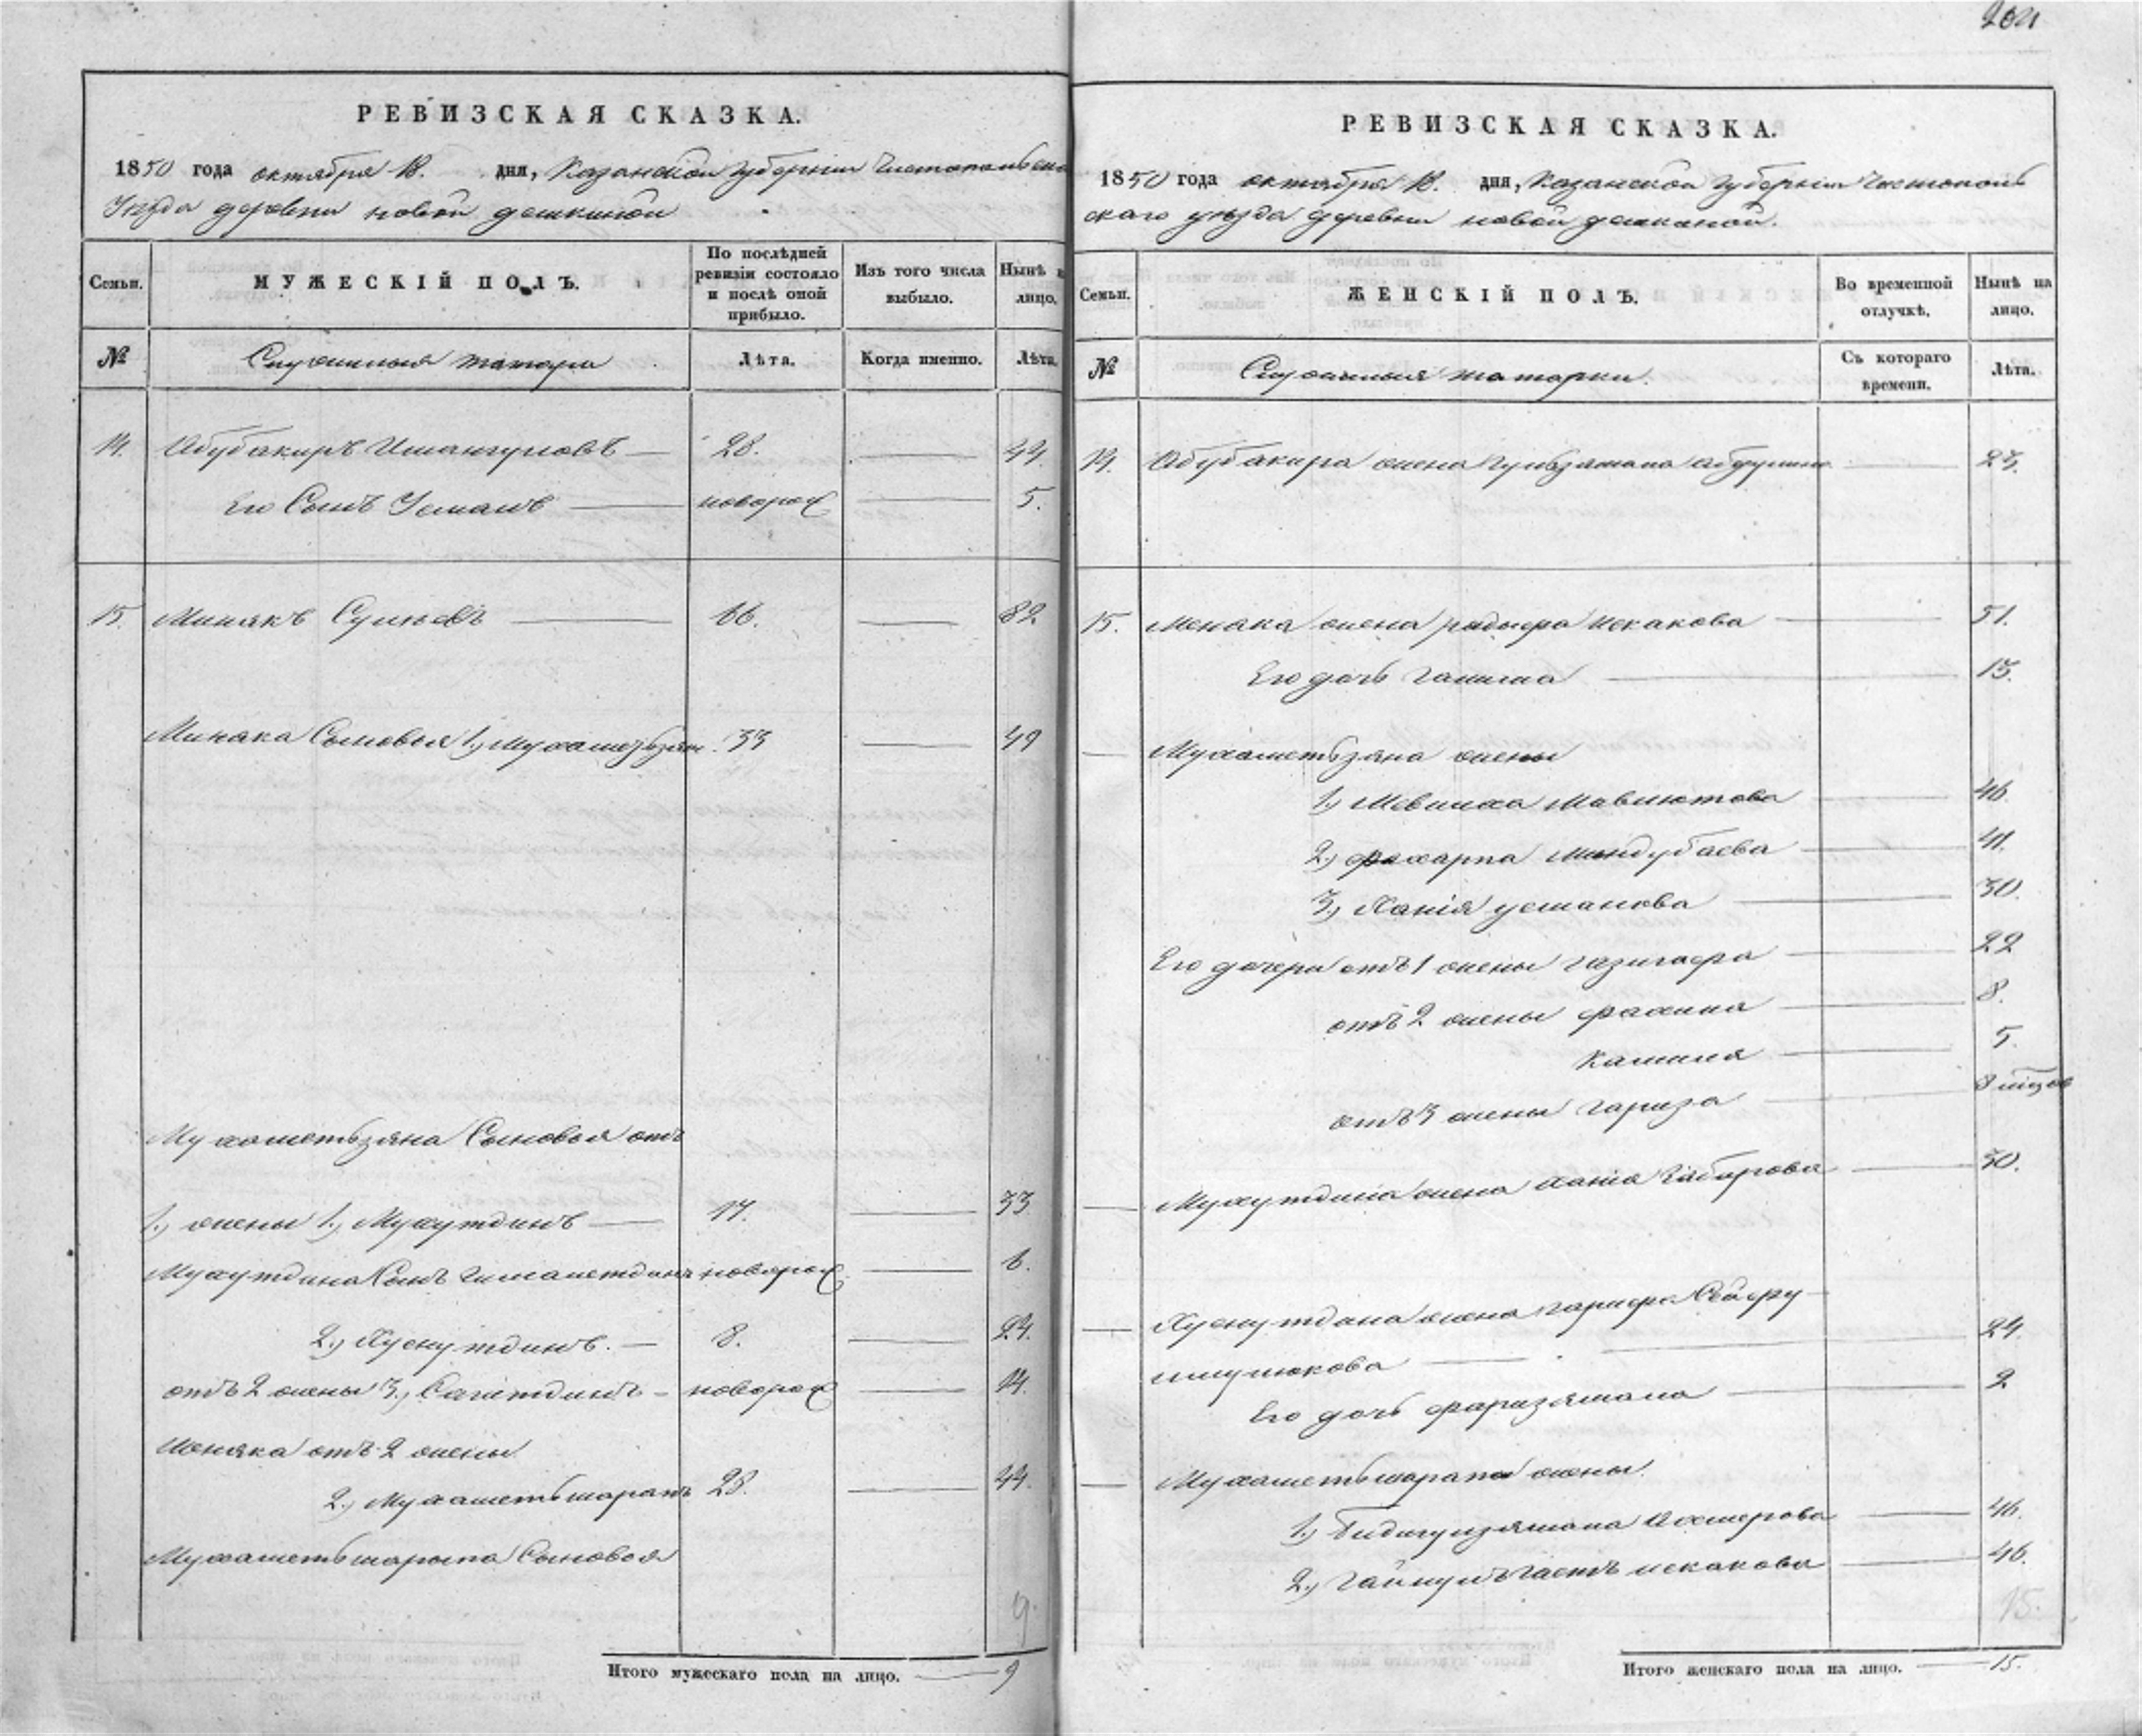 РЕВИЗСКАЯ СКАЗКА.
1850 года октября 18. дня, Казанской губернии Чистопольска
Уезда деревни новой демкиной
Семьи.
МУЖЕСКІЙ ПОЛЪ.
По послѣдней ревизіи состояло и послѣ оной прибыло.
Изъ того числа выбыло.
Нынѣ на лицо.
№
Служилыя татары
Лѣта.
Когда именно.
Лѣта.
14. Абубакиръ Ишангуловъ — 28. — 44.
Его Сынъ Усманъ — новорож — 5.
15. Минякъ Сулѣевъ — 66. — 82
Миняка Сыновья 1.) Мухаметзян 33 — 49
Мухаметьзяна Сыновья отъ
1.) жены 1.) Мухутдинъ — 17. — 33
Мухутдина Сынъ новорож — 6.
2.) Хуснутдинъ. — 8. — 24.
отъ 2 жены 3.) Сагитдинъ — новорож — 14.
Миняка отъ 2 жены
2.) Мухаметьшарапъ 28. — 44.
Мухаметьшарыпа Сыновья
9.
Итого мужескаго пола на лицо. — 9
264
РЕВИЗСКАЯ СКАЗКА.
1850 года октября 18. дня, Казанской губернии Чистополь
скаго уѣзда деревни новой демкиной.
Семьи.
ЖЕНСКІЙ ПОЛЪ.
Во временной отлучкѣ.
Нынѣ на лицо.
№
Служилыя татарки.
Съ котораго времени.
Лѣта.
14. Абубакира жена Гульзямала — 23.
15. Меняка жена Искакова — 51.
Его дочь Галима — 13.
— Мухаметьзяна жены
1.) Мавлютова — 46.
2.) Миндубаева — 41.
3.) Хания усманова — 30.
Его дочери отъ 1 жены — 22
отъ 2 жены — 8.
Камиля — 5.
отъ 3 жены Гариза — 3 мѣсяц
— Мухутдина жена Хания Габирова — 30.
— Хуснутдина жена
— 24.
Его дочь Фаризямала — 2
— Мухаметьшарапа жены.
1.) — 46.
2.) искакова — 46.
15.
Итого женскаго пола на лицо. — 15.